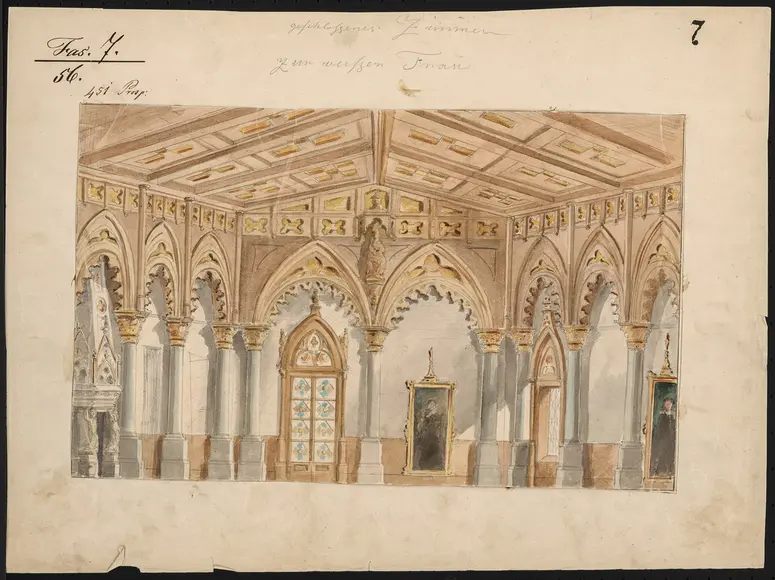 geschlossenes Zimmer
7
zur weißen Frau
Fas. 7.
56.
451 Prosp: